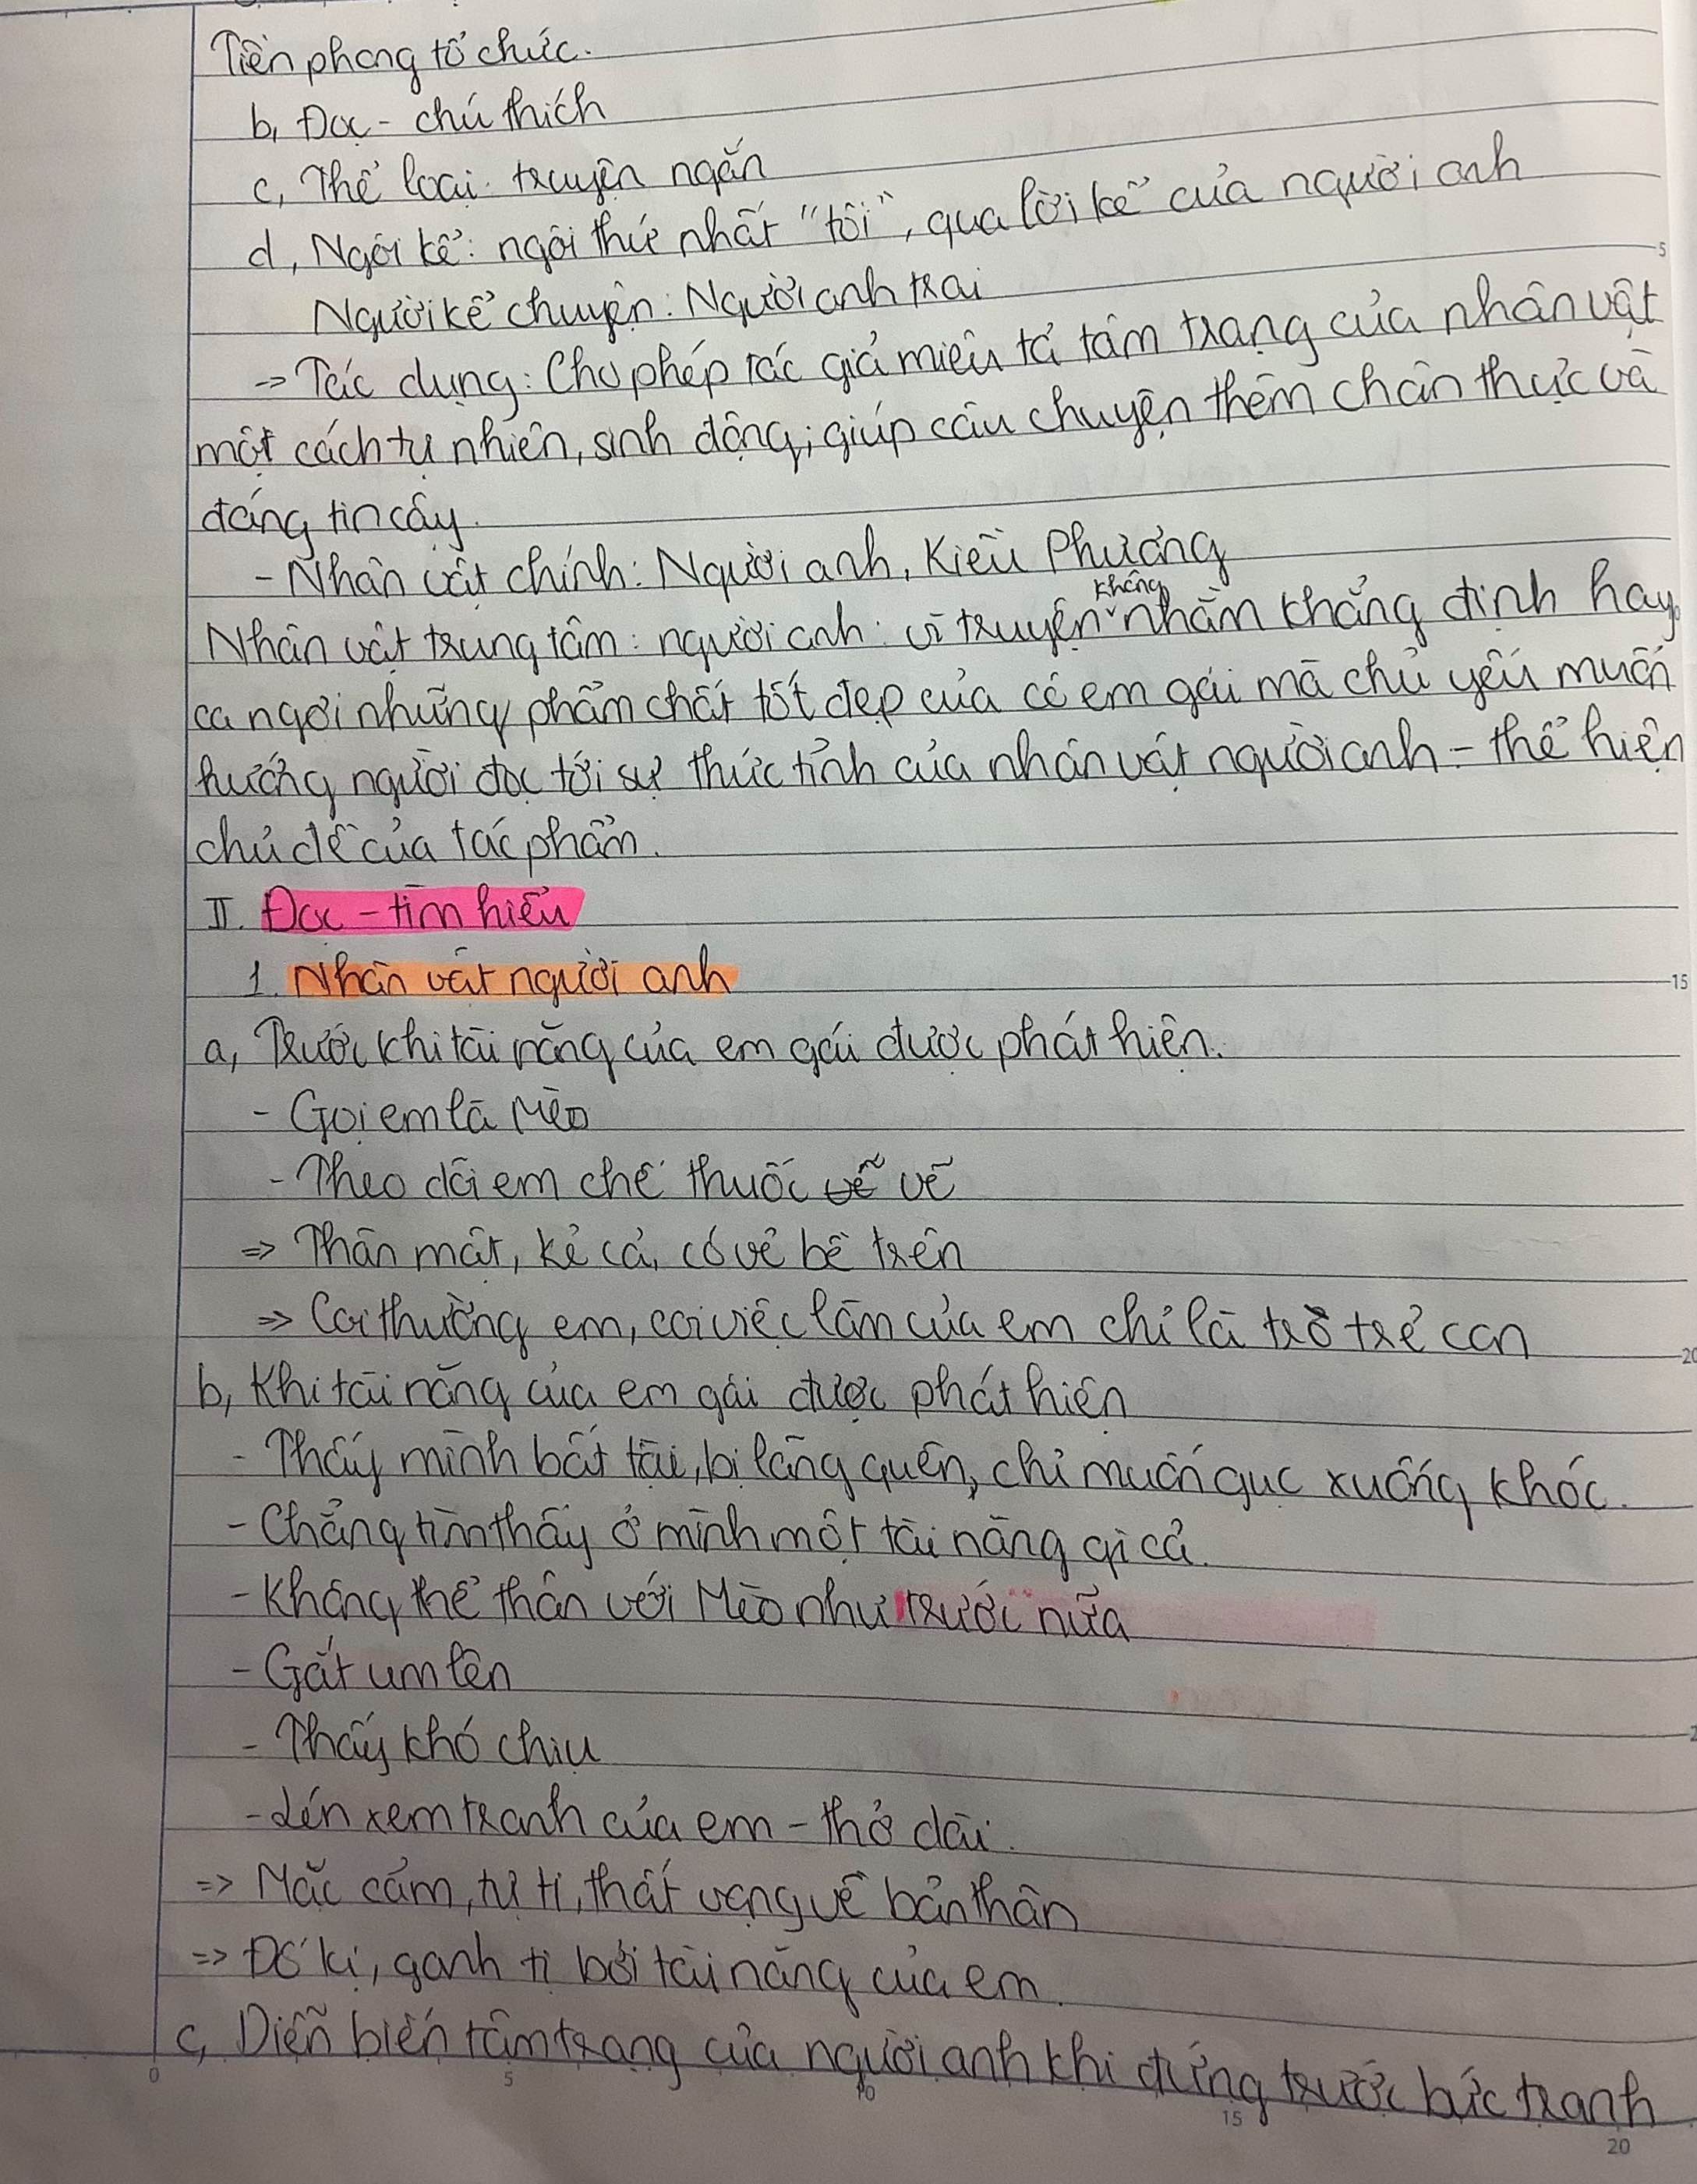 Tiền phong tổ chức.
b, Đọc - chú thích
c, Thể loại: truyện ngắn
d, Ngôi kể: ngôi thứ nhất "tôi", qua lời kể của người anh
Người kể chuyện: Người anh trai
-> Tác dụng: Cho phép tác giả miêu tả tâm trạng của nhân vật
một cách tự nhiên, sinh động; giúp câu chuyện thêm chân thực và
đáng tin cậy.
- Nhân vật chính: Người anh, Kiều Phương
Nhân vật trung tâm: người anh: vì truyện không nhằm khẳng định hay
ca ngợi những phẩm chất tốt đẹp của cô em gái mà chủ yếu muốn
hướng người đọc tới sự thức tỉnh của nhân vật người anh - thể hiện
chủ đề của tác phẩm.
II. Đọc - tìm hiểu
1. Nhân vật người anh
a, Trước khi tài năng của em gái được phát hiện.
- Gọi em là Mèo
- Theo dõi em chế thuốc vẽ vẽ
=> Thân mật, kẻ cả, có vẻ bề trên
=> Coi thường em, coi việc làm của em chỉ là trò trẻ con
b, Khi tài năng của em gái được phát hiện
- Thấy mình bất tài, bị lãng quên, chỉ muốn gục xuống khóc.
- Chẳng tìm thấy ở mình một tài năng gì cả.
- Không thể thân với Mèo như trước nữa
- Gắt um lên
- Thấy khó chịu
- Lén xem tranh của em - thở dài.
=> Mặc cảm, tự ti, thất vọng về bản thân
=> Đố kị, ganh tị bởi tài năng của em.
c, Diễn biến tâm trạng của người anh khi đứng trước bức tranh